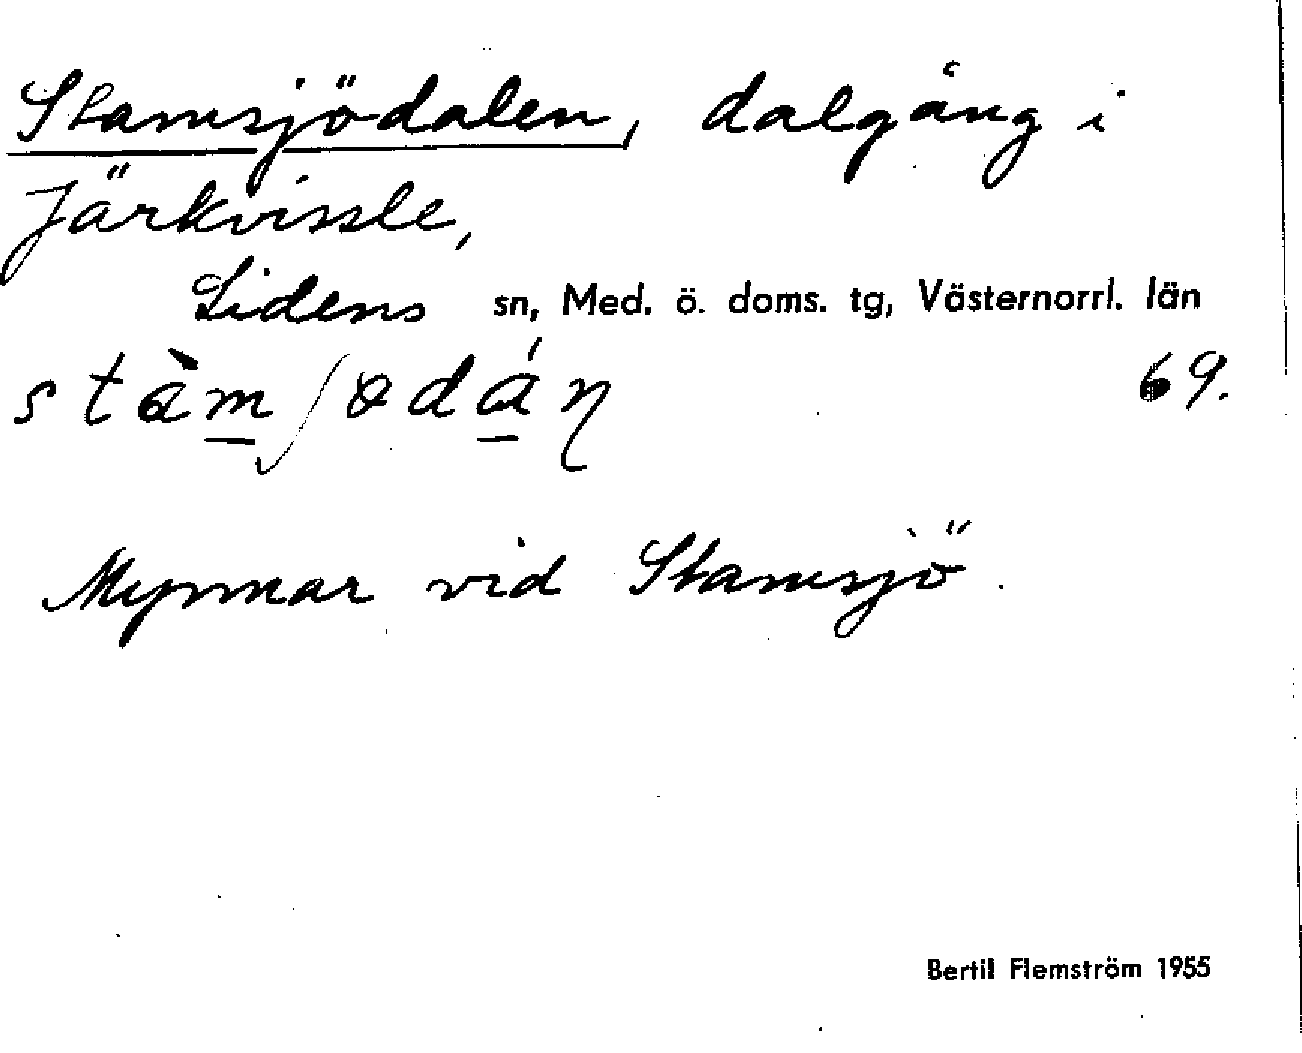 Stamsjödalen, dalgång i
Järkvissle,
Lidens sn, Med. ö. doms. tg, Västernorrl. län
stàm̲ʃɵdá̲ŋ 69.
Myrmar vid Stamsjö.
Bertil Flemström 1955